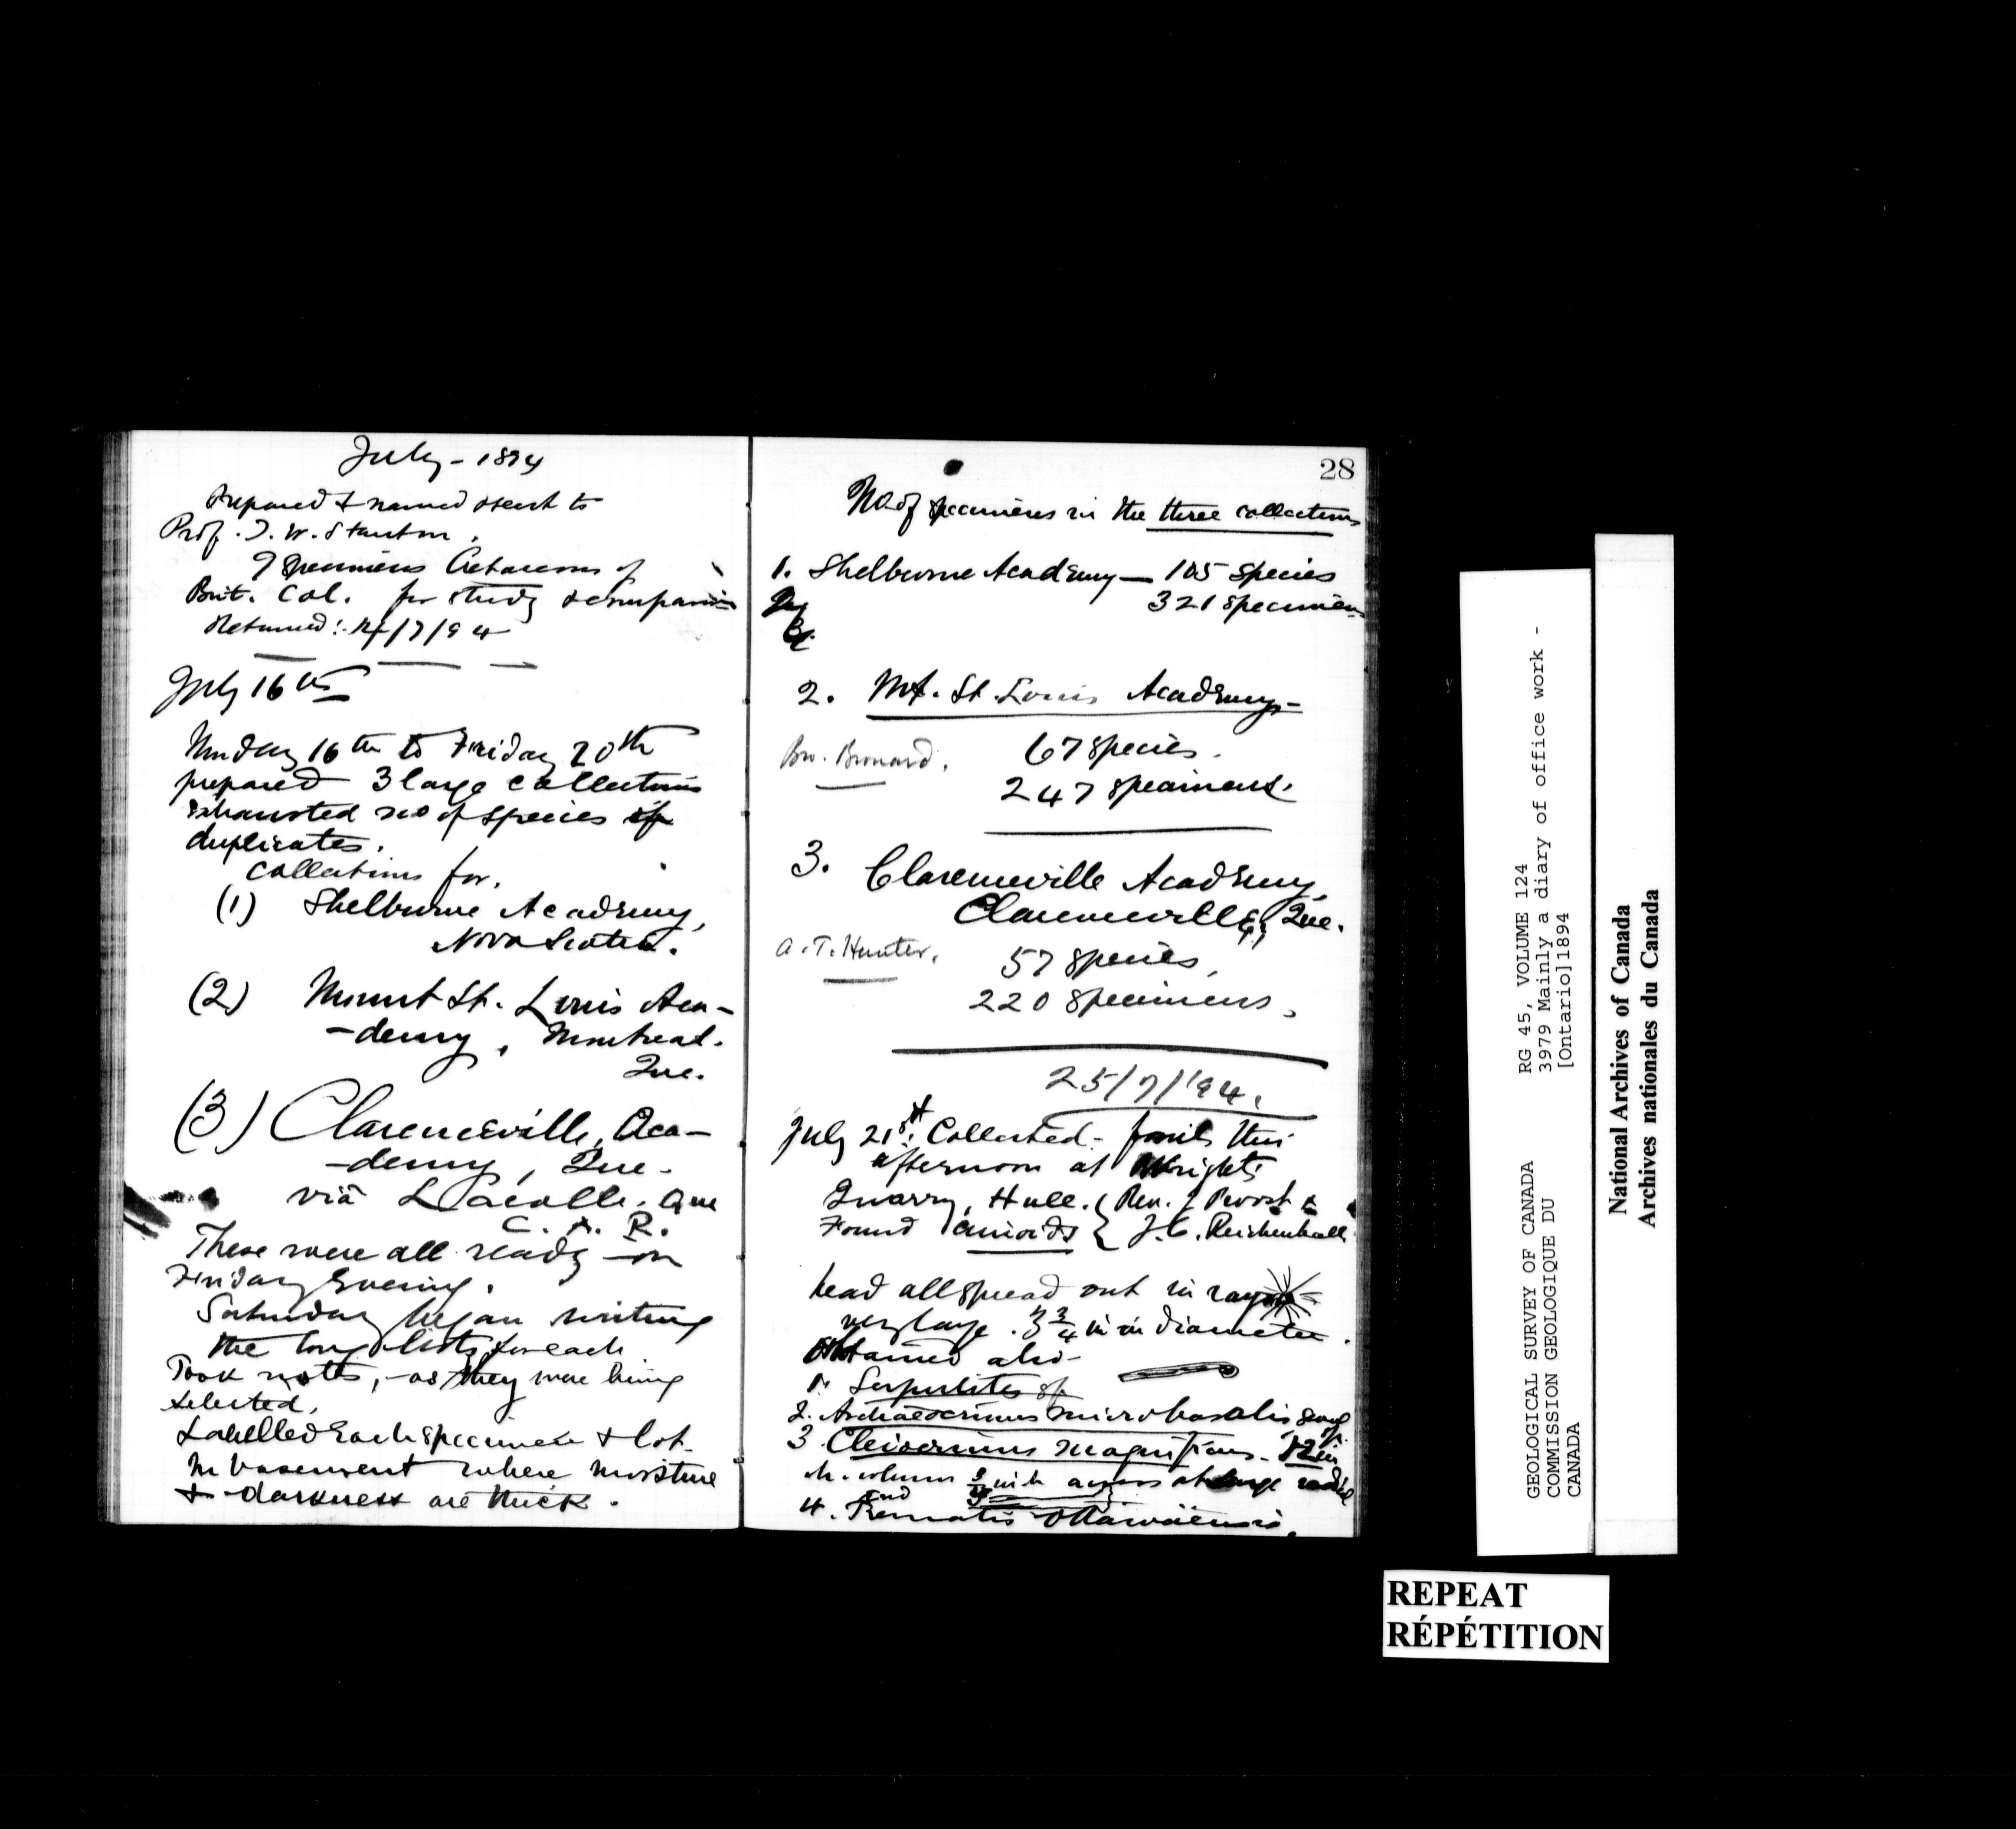 July - 1894
Prepared & named & sent to
Prof. T. W. Stanton.
9 specimens Cretaceous of
Brit. Col. for study & comparison
Returned: 14/7/94
July 16th
Monday 16th to Friday 20th
prepared 3 large collections
exhausted no of species of
duplicates.
Collections for.
(1) Shelburne Academy,
Nova Scotia.
(2) Mount St. Louis Aca-
-demy, Montreal.
Que.
(3) Clarenceville, Aca-
-demy, Que.
viâ Lacolle, Que
C. A. R.
These were all ready on
Friday Evening.
Saturday began writing
the long lists for each
Took notes, - as they were being
selected.
Labelled Each specimen & lot.
In basement where moisture
& darkness are thick.
28
No. of specimens in the three collections
1. Shelburne Academy — 105 species
2. 321 specimens
3.
2. Mt. St. Louis Academy -
Bro. 67 species.
247 specimens.
3. Clarenceville Academy,
Clarenceville, Que.
A. T. Hunter. 57 species,
220 specimens,
25/7/'94.
July 21st: Collected - fossils this
afternoon at Wrights
Quarry, Hull. { Rev. &
Found { J. C.
head all spread out in rays
very large. 3 3/4 in in diameter.
Obtained also -
1. Serpulites sp
2. Archaeocrinus microbasalis
3. Cleiocrinus magnificus. 12 in
column 3/4 inch across at large
end
4. Trematis Ottawaensis.
GEOLOGICAL SURVEY OF CANADA RG 45, VOLUME 124
COMMISSION GEOLOGIQUE DU 3979 Mainly a diary of office work -
CANADA [Ontario]1894
National Archives of Canada
Archives nationales du Canada
REPEAT
RÉPÉTITION